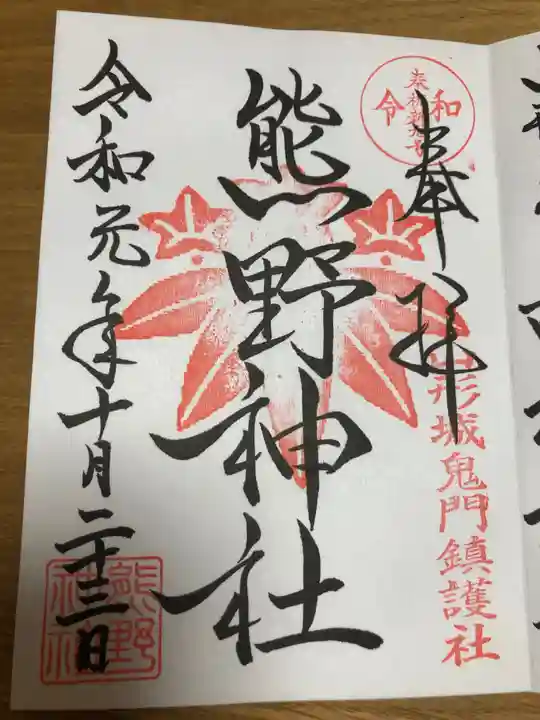 奉拝
奉祝新元号
令和
山形城鬼門鎮護社
熊野神社
令和元年十月二十三日
熊野
神社